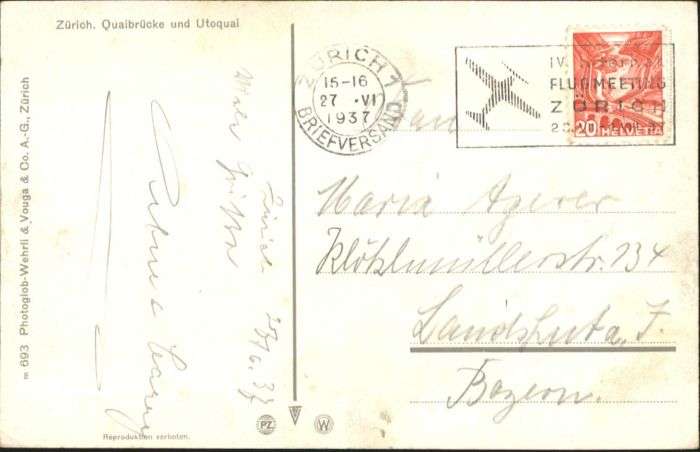 Zürich. Quaibrücke und Utoquai
m 693 Photoglob-Wehrli & Vouga & Co. A.-G., Zürich
Zürich 26/6.37
ZÜRICH 1
15-16
27 · VI
1937
BRIEFVERSAND
IV.
FLUGMEETING
ZÜRICH
20 HELVETIA
Maria Agerer
Klötzlmüllerstr. 234
Landshut a/J.
Bayern.
PZ
W
Reproduktion verboten.